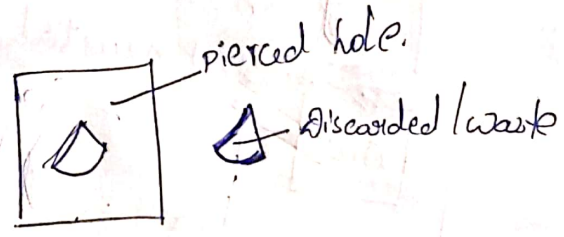 pierced hole.
Discarded / waste